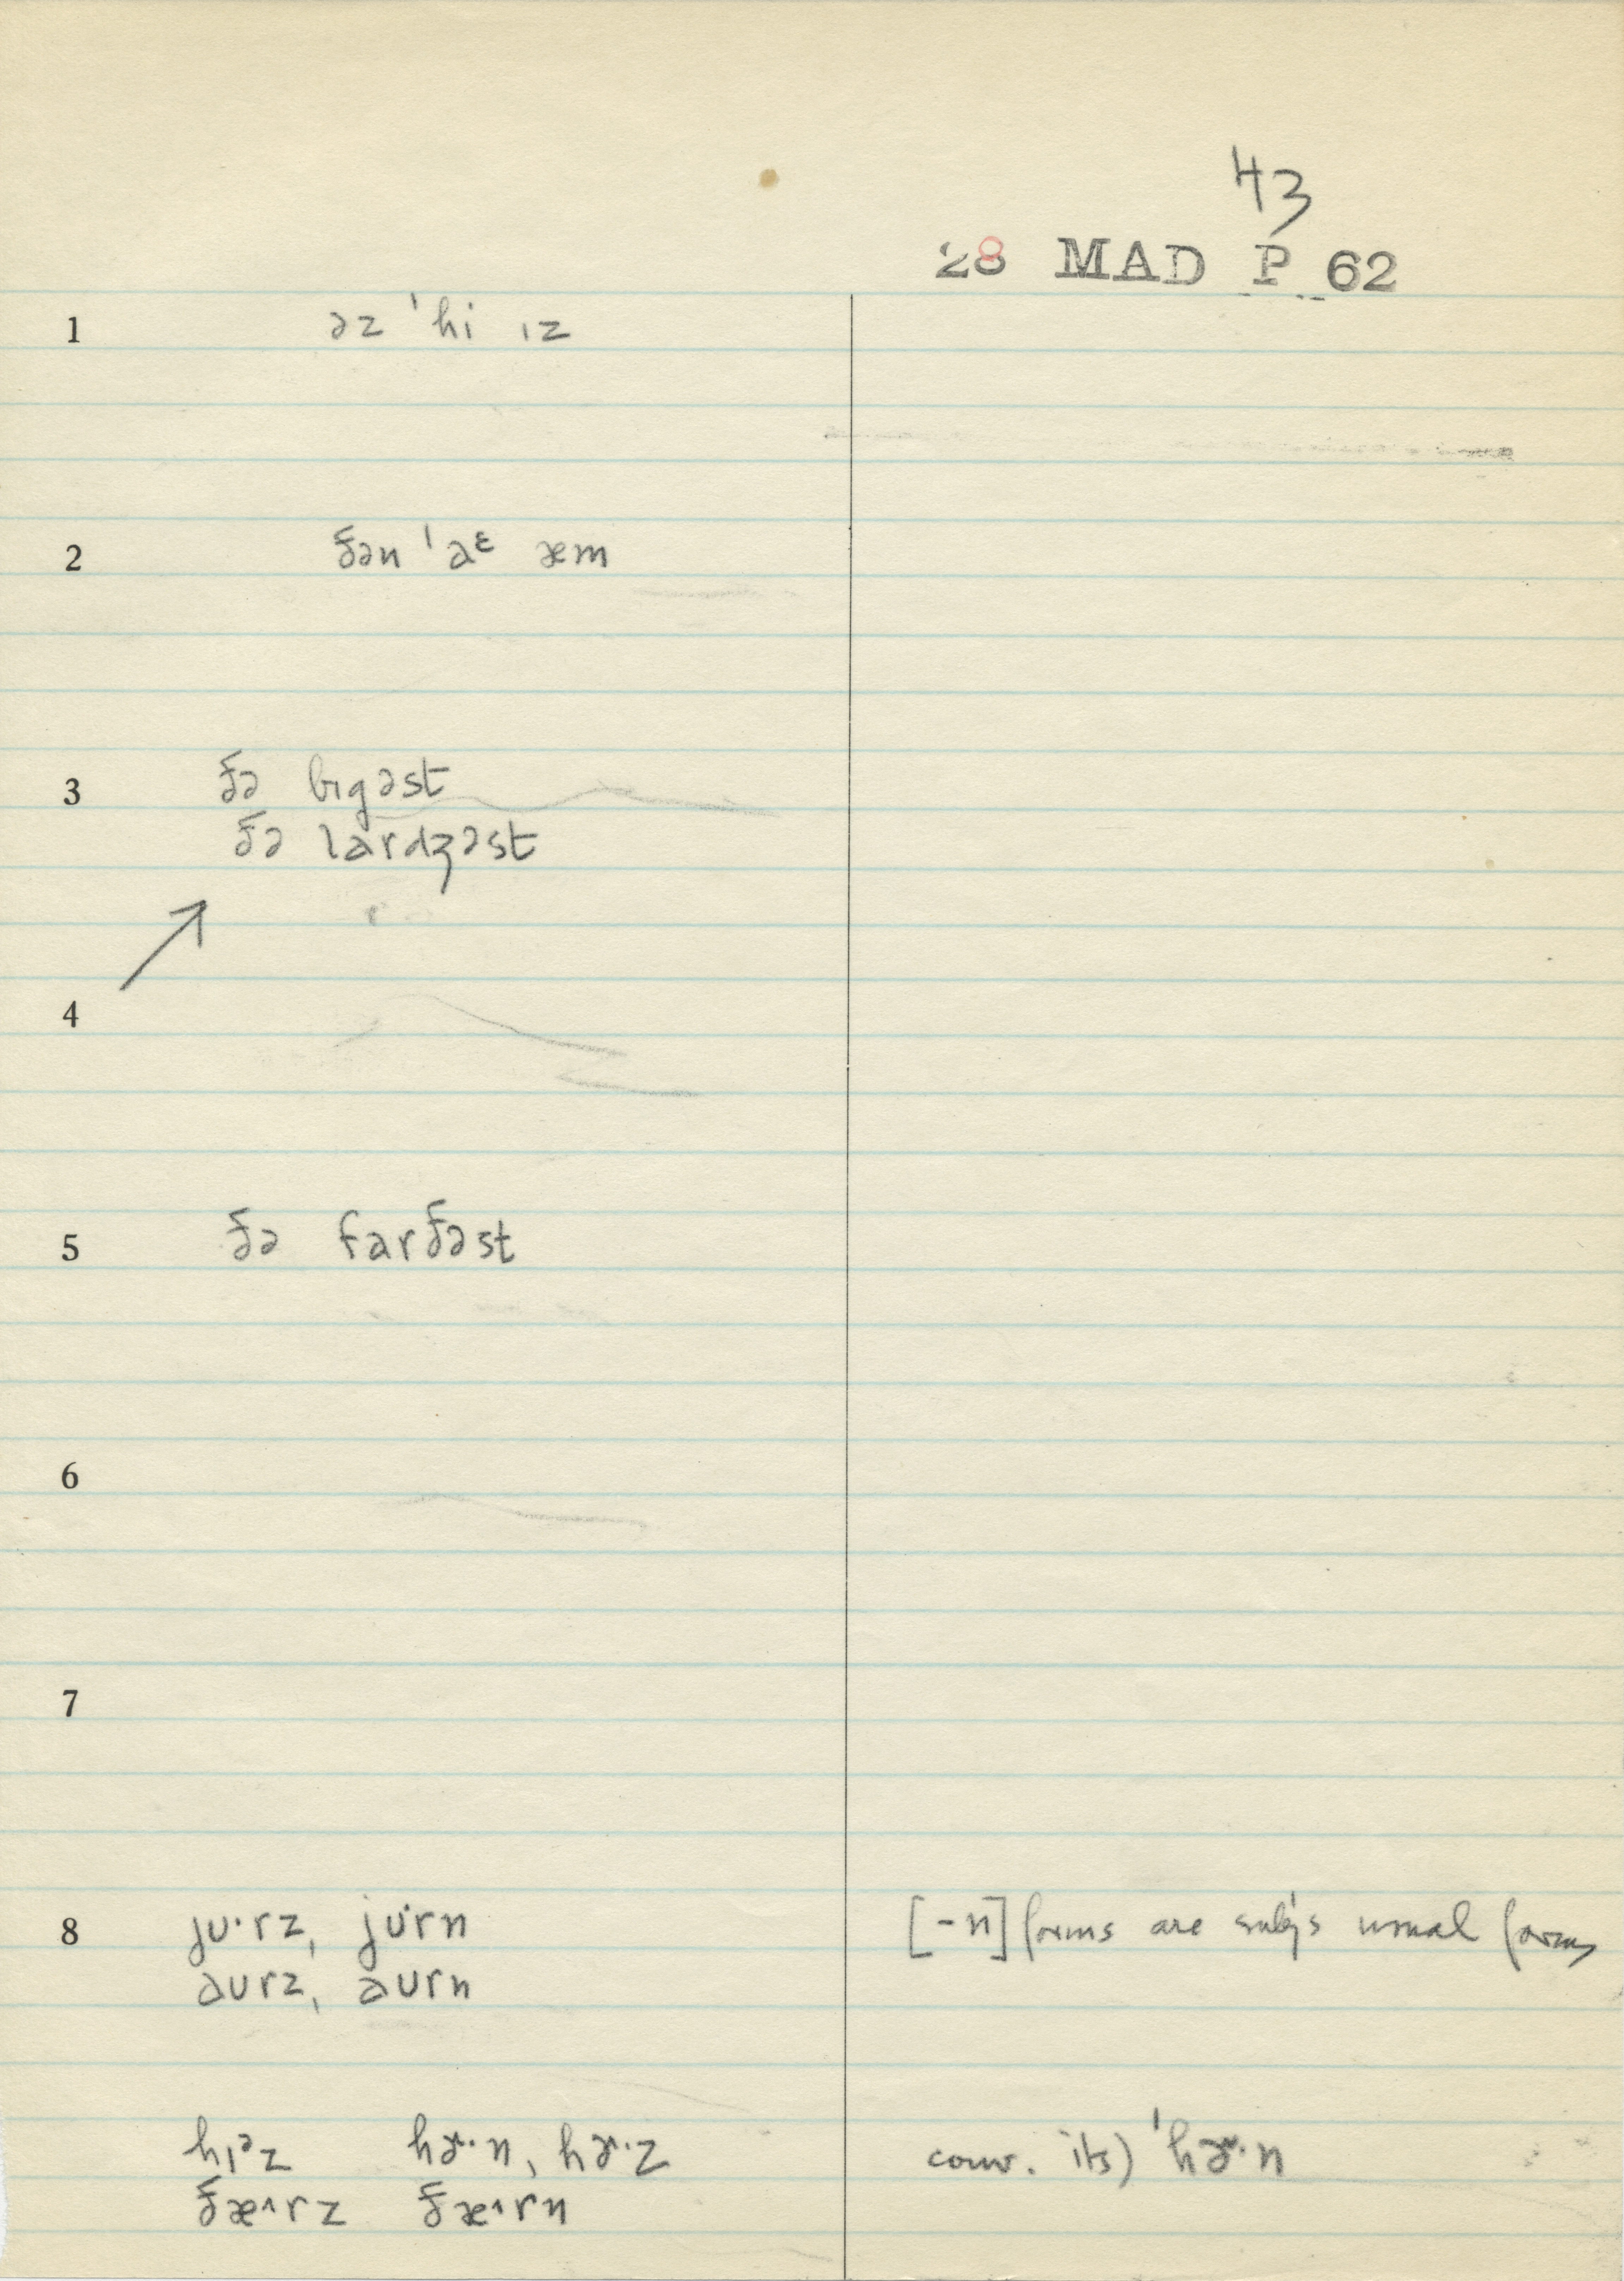 43
28 MAD P 62
1 əz ˈhi ɪz
2 ðən ˈaᵋ æm
3 ðə bɪgəst
ðə lardʒəst
4
5 ðə farðəst
6
7
8 jʊ·rz, jʊ·rn [-n] forms are subj's usual forms
aʊrz, aʊrn
hɪᵊz hɚ·n, hɚ·z conv. its) ˈhɚ·n
ðæ^rz ðæ^rn